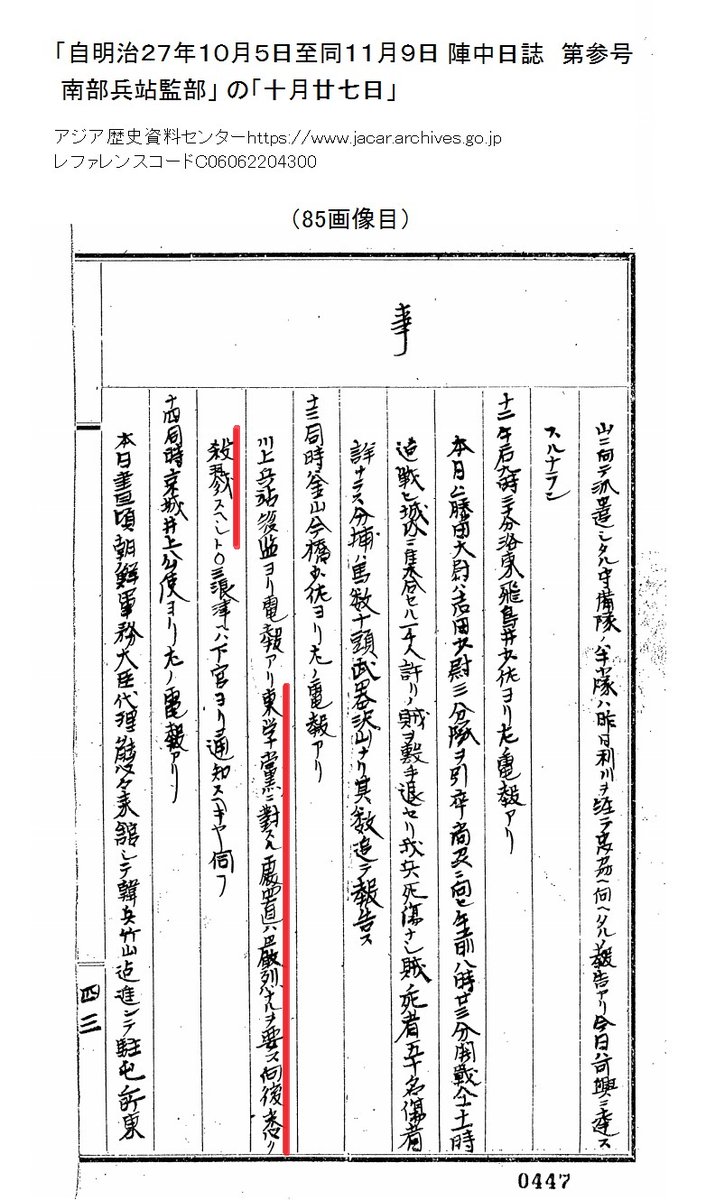 「自明治27年10月5日至同11月9日 陣中日誌　第参号
南部兵站監部」の「十月廿七日」
アジア歴史資料センターhttps://www.jacar.archives.go.jp
レファレンスコードC06062204300
（85画像目）
事
山ニ向テ派遣シタル守備隊ノ半小隊ハ昨日利川ヲ経テ忠州ヘ向ヘタル報告アリ今日可興ニ達ス
スルナラン
十二午后九時三十分洛東飛鳥井少佐ヨリ左ノ電報アリ
本日午勝田大尉ハ吉田少尉三分隊ヲ引卒尚州ニ向ヒ午前八時廿三分開戦仝十一時
迄戦ヒ城内ニ集合セル二千人許リノ賊ヲ撃退セリ我兵死傷ナシ賊死者五十名傷者
詳ナラス分捕ハ馬数十頭武器沢山ナリ其数追テ報告ス
十三同時釜山今橋少佐ヨリ左ノ電報アリ
川上兵站総監ヨリ電報アリ東学党ニ対スル処置ハ厳烈ナルヲ要ス向後悉ク
殺戮スヘシト〇三浪津ハ下官ヨリ通知スヘキヤ伺フ
十四同時京城井上公使ヨリ左ノ電報アリ
本日昼頃朝鮮軍務大臣代理態々来館シテ韓兵竹山迄進ンテ駐屯所東
四三
0447